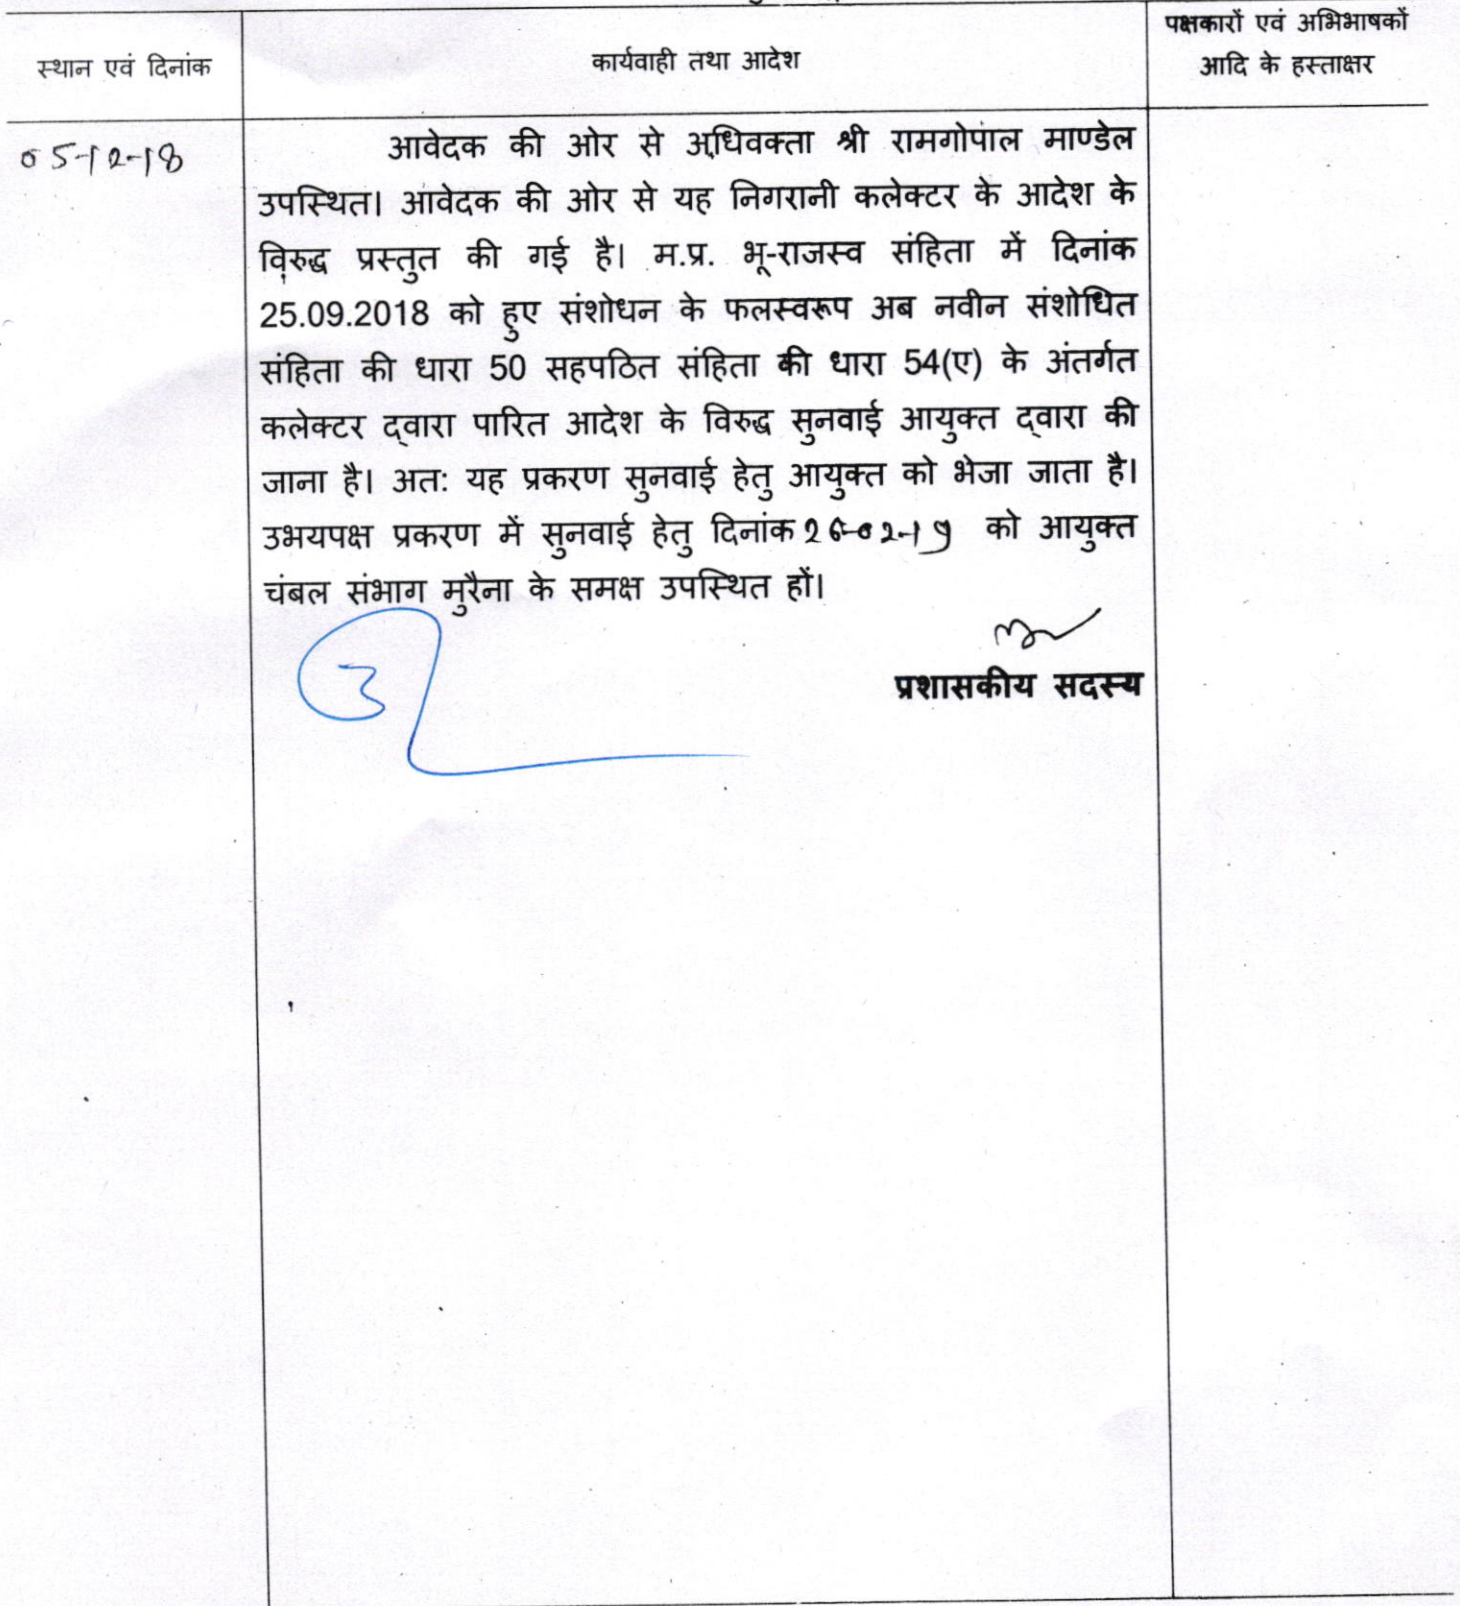 स्थान एवं दिनांक
कार्यवाही तथा आदेश
पक्षकारों एवं अभिभाषकों
आदि के हस्ताक्षर
05-12-18
आवेदक की ओर से अधिवक्ता श्री रामगोपाल माण्डेल
उपस्थित। आवेदक की ओर से यह निगरानी कलेक्टर के आदेश के
विरुद्ध प्रस्तुत की गई है। म.प्र. भू-राजस्व संहिता में दिनांक
25.09.2018 को हुए संशोधन के फलस्वरूप अब नवीन संशोधित
संहिता की धारा 50 सहपठित संहिता की धारा 54(ए) के अंतर्गत
कलेक्टर द्वारा पारित आदेश के विरुद्ध सुनवाई आयुक्त द्वारा की
जाना है। अत: यह प्रकरण सुनवाई हेतु आयुक्त को भेजा जाता है।
उभयपक्ष प्रकरण में सुनवाई हेतु दिनांक 26-02-19 को आयुक्त
चंबल संभाग मुरैना के समक्ष उपस्थित हों।
प्रशासकीय सदस्य